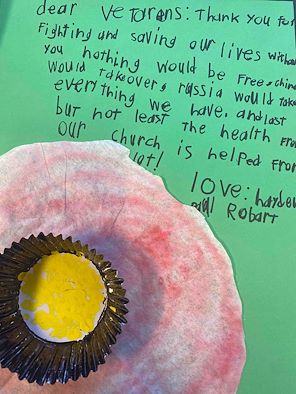 dear vetarens: Thank you for
Fighting and saving our lives withou
you nothing would be Free, china
would takeover, russia would take
everything we have, and last
but not least the health from
our church is helped from
lot!
love: hayden
paul Robart